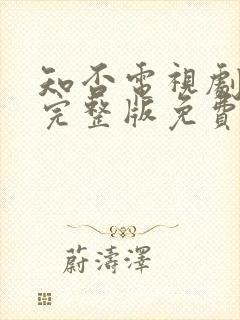 知否電視劇
完整版免費
蔚濤澤